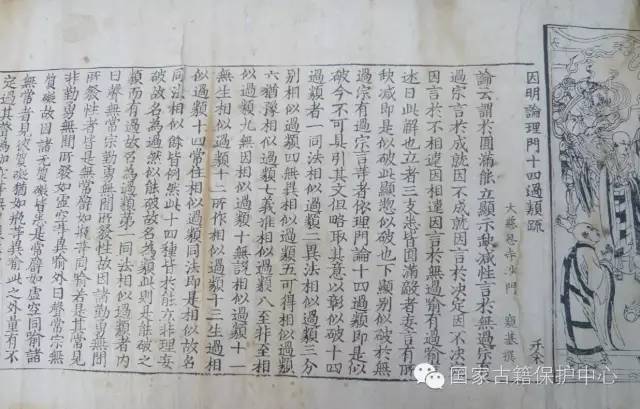 因明論理門十四過類疏
大慈恩寺沙門 窺基 撰
論云謂於圓滿能立顯示缺減性言於無過宗有
過宗言於成就因不成就因言於決定因不決定
因言於不相違因相違因言於無過喻有過喻言
述曰此辭也立者三支悉皆圓滿敵者妄言有所
缺減即是似破此顯惣似破也下顯別似破於無
過宗有過宗言等者依理門論十四過類即是似
破今不可具引其文但略取其意以彰似破十四
過類者一同法相似過類二異法相似過類三分
別相似過類四無異相似過類五可得相似過類
六猶豫相似過類七義准相似過類八至非至相
似過類九無因相似過類十無說相似過類十一
無生相似過類十二所作相似過類十三生過相
似過類十四常住相似過類同法即是相似故名
同法相似餘皆例然此十四種於能立非理妄
破故名為過然似能破故名為類此則是能破之
類而有過故名為過類第一同法相似過類者內
曰聲無常宗勤勇無間所發性故因諸勤勇無間
所發性者皆是無常譬如瓶等同喻若是其常見
非勤勇無間所發如虛空等異喻外曰聲常宗無
質礙故因諸無質礙皆是常譬如虛空同喻諸
無常者見彼質礙猶如瓶等異喻此之外量有不
定過其聲為如
国家古籍保护中心